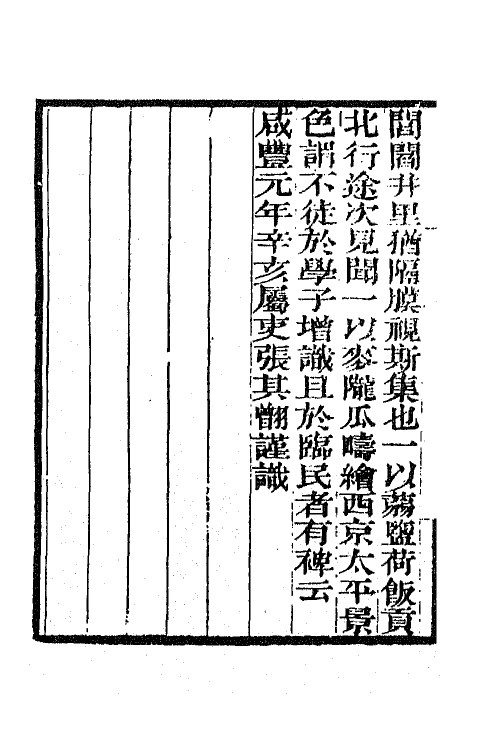 閭閻井里猶隔膜視斯集也一以蒭鹽荷飯貢
北行途次見聞一以麥隴瓜疇繪西京太平景
色謂不徒於學子增識且於臨民者有裨云
咸豐元年辛亥屬吏張其翻謹識